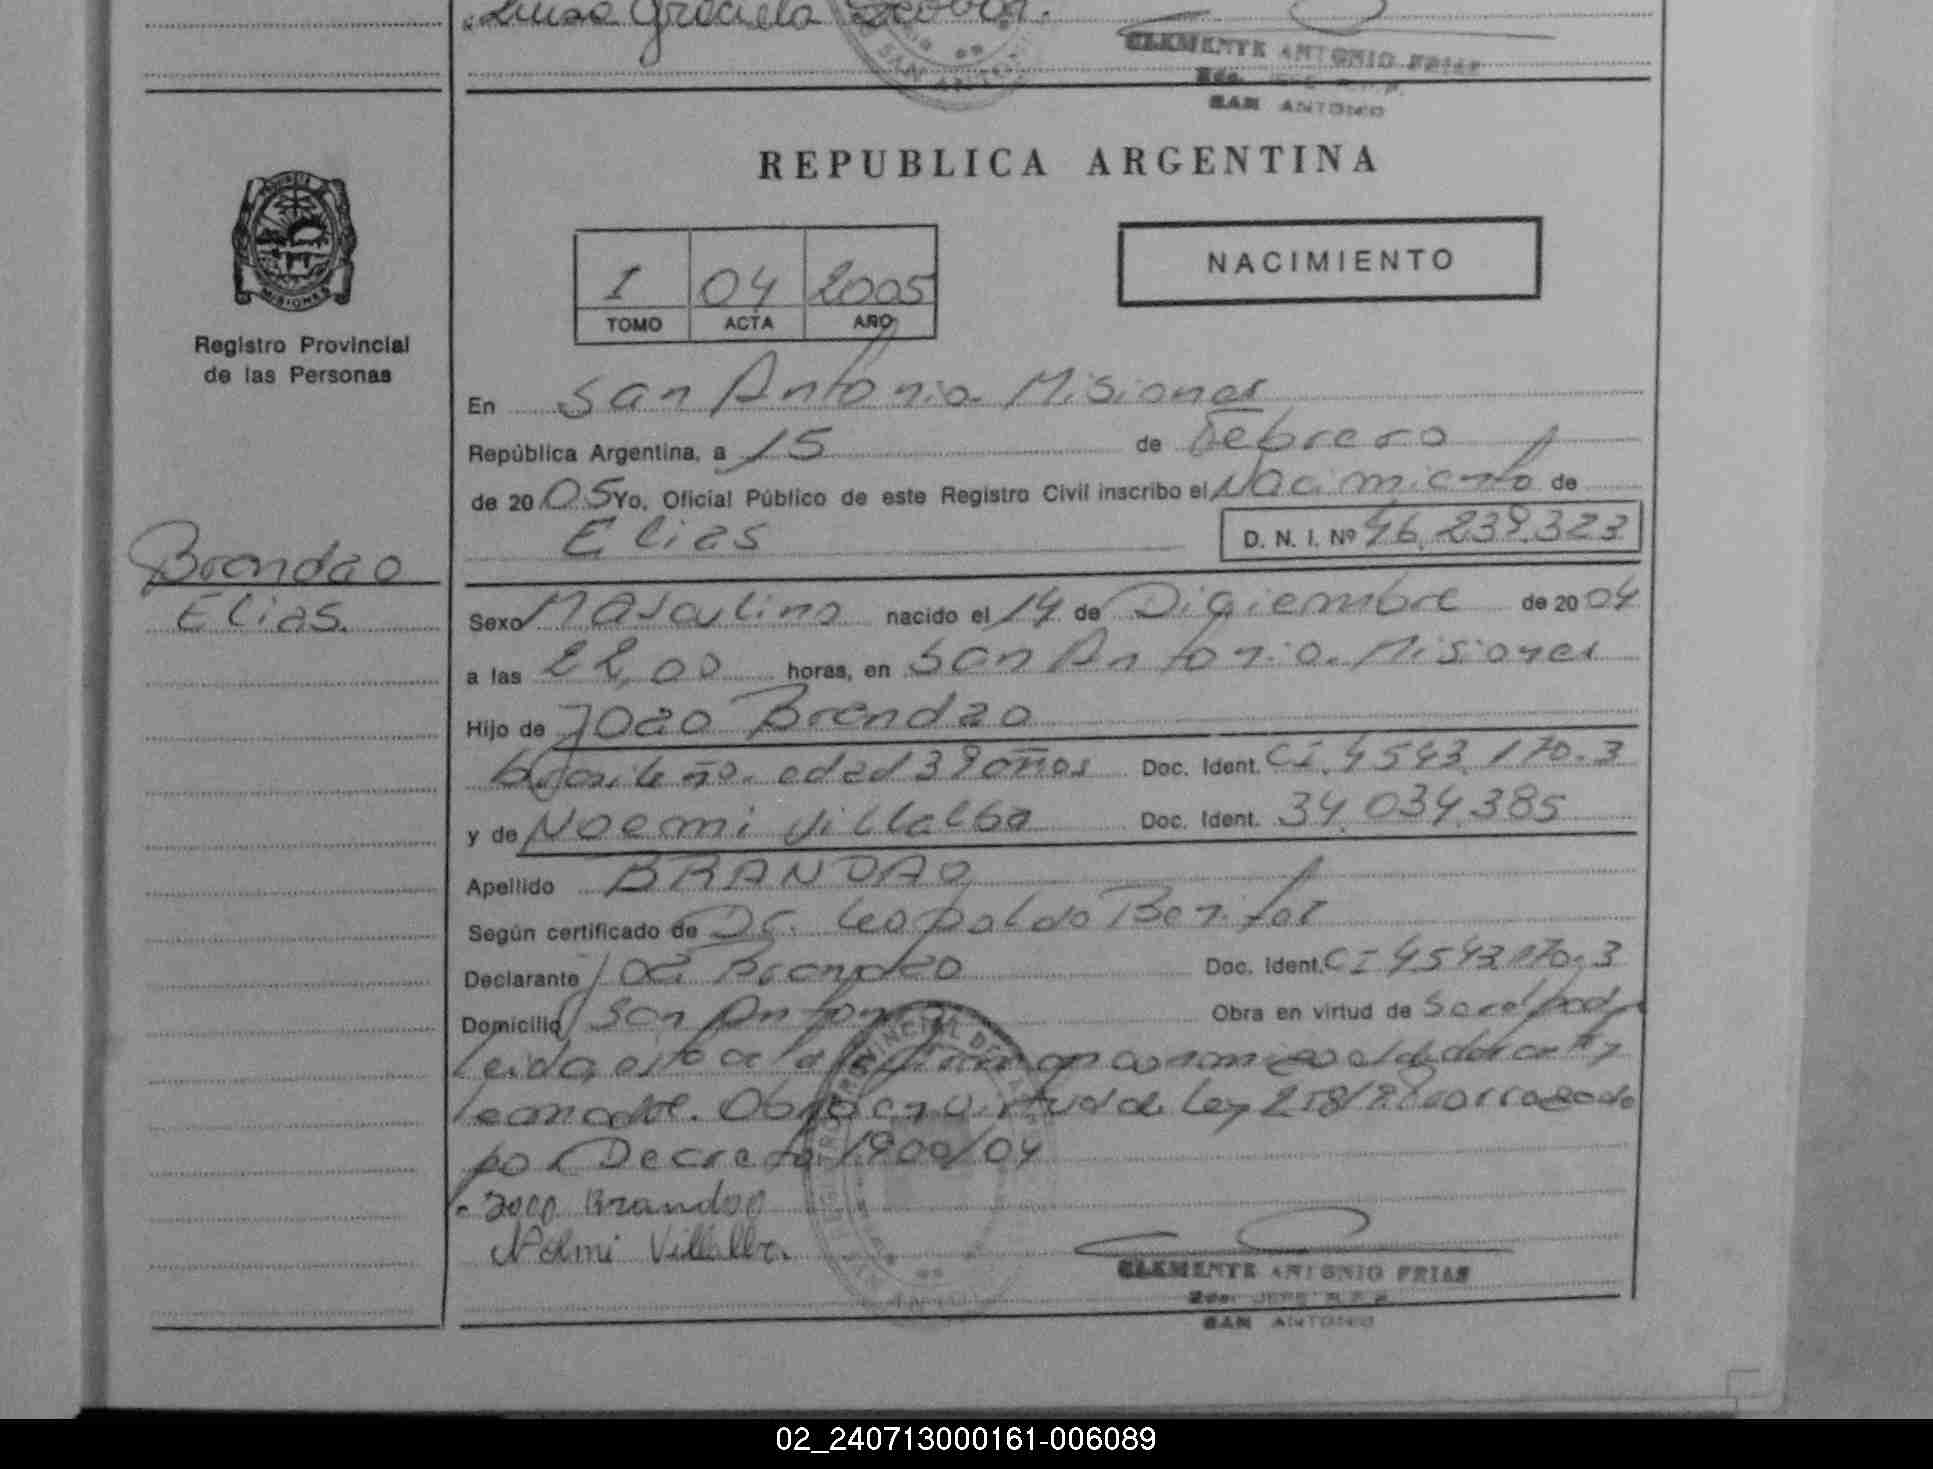 Luisa Graciela
CLEMENTE ANTONIO FRIAS
SAN ANTONIO
REPUBLICA ARGENTINA
MISIONES
Registro Provincial
de las Personas
I 04 2005
TOMO ACTA AÑO
NACIMIENTO
En San Antonio. Misiones
República Argentina, a 15 de Febrero
de 2005 Yo, Oficial Público de este Registro Civil inscribo el Nacimiento de
Elias D. N. I. Nº 46.239.323
Brandao
Elias.
Sexo Masculino nacido el 14 de Diciembre de 2004
a las 22,00 horas, en San Antonio. Misiones
Hijo de Joao Brandao
brasileño. edad 39 años Doc. Ident. CI. 4543.170-3
y de Noemi Villalba Doc. Ident. 34.034.385
Apellido BRANDAO
Según certificado de Dr. Leopoldo
Declarante Brandao Doc. Ident. CI 4543170-3
Domicilio San Antonio Obra en virtud de
Leida, esta acta firman conmigo el declarante y
Obra en virtud de Ley
por Decreto 1900/04
Joao Brandao
Noemi Villalba.
CLEMENTE ANTONIO FRIAS
Edo. JEFE R.P.P.
SAN ANTONIO
02_240713000161-006089